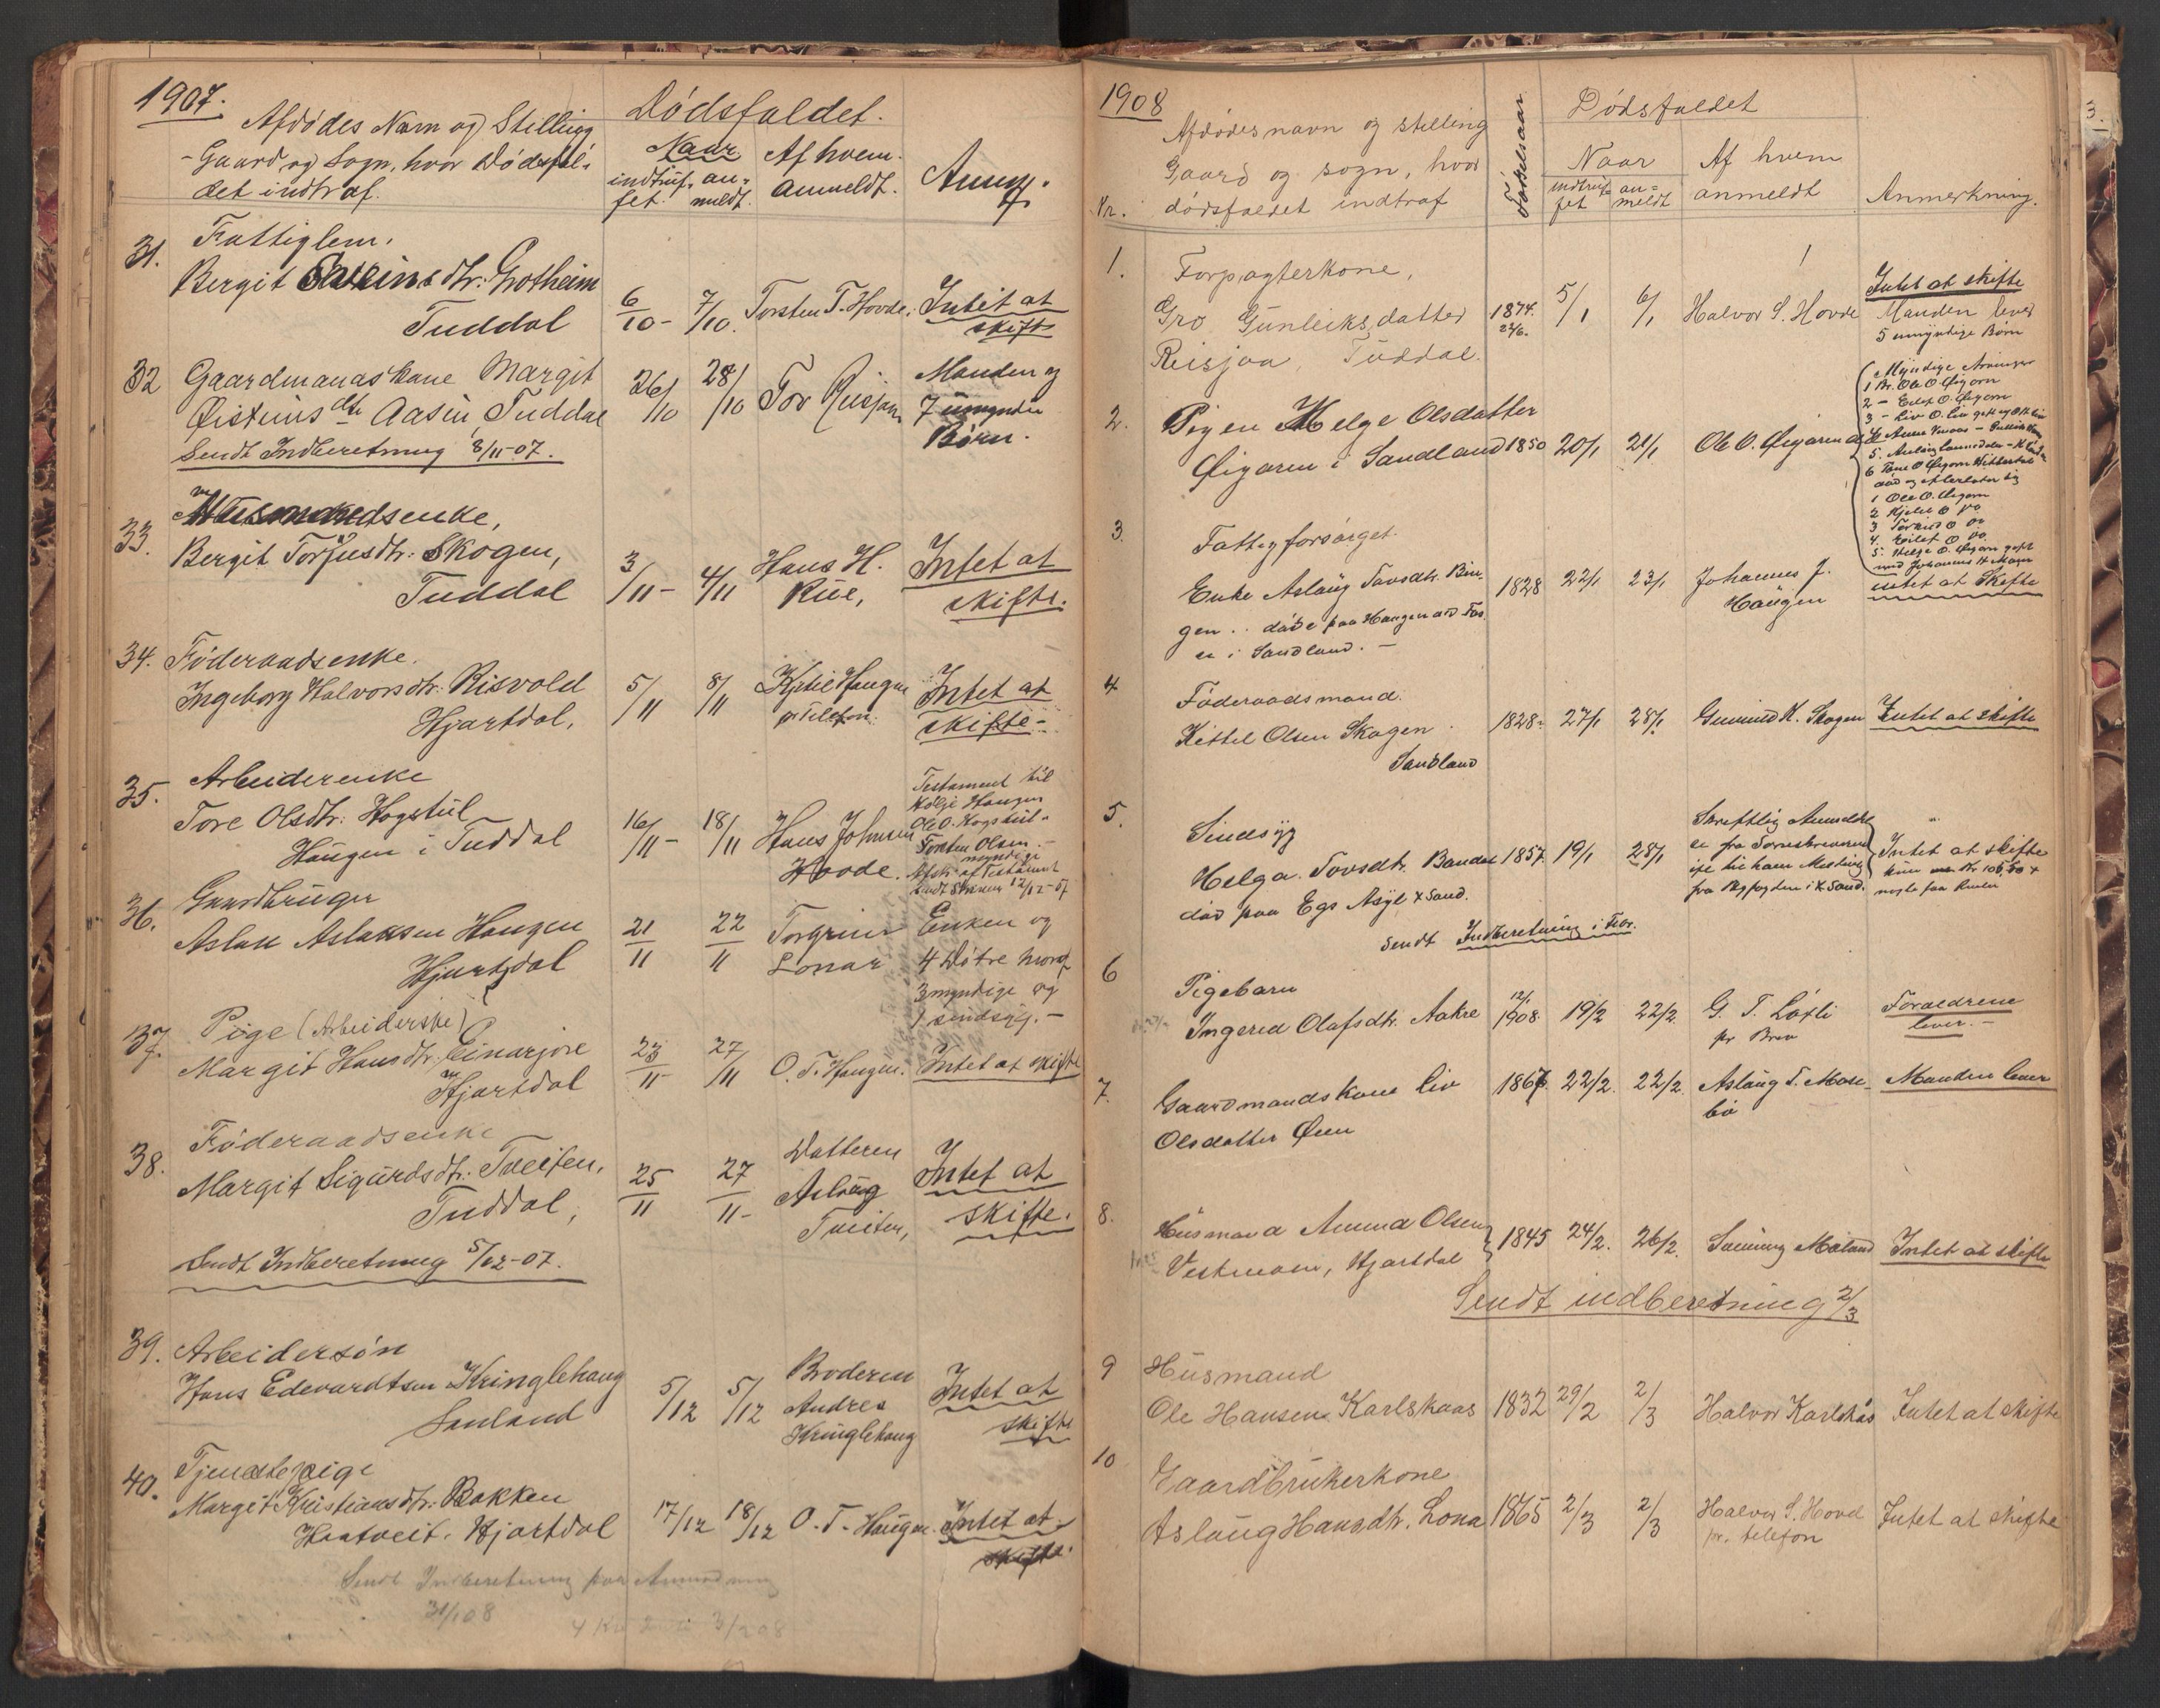 1907.
Afdødes Navn og Stilling
- Gaard og Sogn, hvor Dødsfal-
det indtraf.
Dødsfaldet.
Naar
indtruf-
fet.
an-
meldt.
Af hvem
anmeldt.
Anm.
31.
Fattiglem.
Bergit Sveinsdtr. Grotheim
Tuddal
6/10 -
7/10.
Torsten T. Hovde.
Intet at
skifte
32
Gaardmandskone Margit
Østeinsdtr Aasen, Tuddal
Sendt Indberetning 8/11-07.
26/10
28/10
Tov Reisjaa
Manden og
7 umyndige
Børn.
33.
Husmandsenke,
Bergit Torjusdtr. Skogen,
Tuddal
3/11 -
4/11
Hans H.
Rue,
Intet at
skifte.
34.
Føderaadsenke.
Ingeborg Halvorsdtr. Risvold
Hjartdal,
5/11
8/11
Kjetil Haugen
pr Telefon.
Intet at
skifte -
35.
Arbeiderenke
Tore Olsdtr. Hogstul
Haugen i Tuddal
16/11 -
18/11
Hans Johnsen
Hovde.
Testament til
Helje Haugen
Ole O. Hogstul
Torsten Olsen.
myndige
Afsk. af Testament
sendt 12/12-07
36.
Gaardbruger
Aslak Aslaksen Haugen
Hjartdal
21/11
22/11
Torgrim
Lonar
Enken og
4 Døtre hvoraf
3 myndige og
1 sindsyg. -
37.
Pige (Arbeiderske)
Margit Hansdtr. Einarjore
Hjartdal
23/11 -
27/11
O. T. Haugen.
Intet at skifte
38.
Føderaadsenke
Margit Sigurdsdtr. Tveiten,
Tuddal,
Sendt Indberetning 5/12-07.
25/11
27/11 -
Datteren
Aslaug
Tveiten,
Intet at
skifte.
39.
Arbeidersøn
Hans Edevardtsen Kringlehaug
Sauland
5/12
5/12
Broderen
Andres
Kringlehaug
Intet at
skifte
40.
Tjenestepige
Margit Kristiansdtr. Bakken
Haatveit. Hjartdal
17/12
18/12
O. T. Haugen.
Intet at
skifte
Sendt Indberetning paa
31/1 08
3/2 08
1908
Nr.
Afdødes navn og stilling
Gaard og sogn, hvor
dødsfaldet indtraf
Fødselsaar
Dødsfaldet
Naar
indtruf-
fet
an-
meldt
Af hvem
anmeldt
Anmerkning.
1.
Forpagterkone,
Gro Gunleiksdatter
Reisjaa, Tuddal.
1874.
5/1
6/1
Halvor S. Hovde
Intet at skifte
Manden lever
5 umyndige Børn
2.
Pigen Helge Olsdatter
Øigarn i Sandland
1850
20/1
21/1
Ole O. Øigarn
Myndige Arvinger
1 Br. Ole O Øigarn
2 - Eilef O. Øigarn
6 Tone O Øigarn
død og efterlater sig
1 Ole O. Øigarn
2 Kjetil O do
4. Eilef O do
5. Helge O. Øigarn gift
med Johannes H
3.
Fattigforsørget.
Enke Aslaug Tovsdtr. Bin-
gen .. døde paa Haugen
er i Sandland. -
1828
22/1
23/1
Johannes J.
Haugen
intet at Skifte
4
Føderaadsmand.
Kittel Olsen Skogen
Sandland
1828.
27/1
28/1
Gunnuld K. Skogen
Intet at skifte
5.
Sindsyg
Helga Tovsdtr. Bander
død paa Egs Asyl X Sand.
Sendt Indberetning i Febr.
1857.
19/1
28/1
Skriftlig Anmeldel-
se fra Sorenskriveren
fra Byfogden i X Sand.
Intet at skifte
kun Kr 106,50
6
Pigebarn
Ingerid Olafsdtr. Aakre
12/1
1908.
19/2
22/2.
G. T. Løfli
pr Brev
Foraeldrene
lever. -
7.
Gaardmandskone Liv
Olsdatter Øien
1867
22/2.
22/2.
Aslaug T. Mose-
bø
Manden lever
8.
Husmand Amund Olsen
Vestmoen, Hjartdal
1845
24/2.
26/2.
Sauning Moland
Intet at skifte
Sendt indberetning 2/3
9
Husmand
Ole Hansen Karlskaas
1832
29/2
2/3
Halvor Karlskås
Intet at skifte
10
Gaardbrukerkone
Aslaug Hansdtr. Lona
1865
2/3
2/3
Halvor S. Hovd
pr. telefon
Intet at skifte